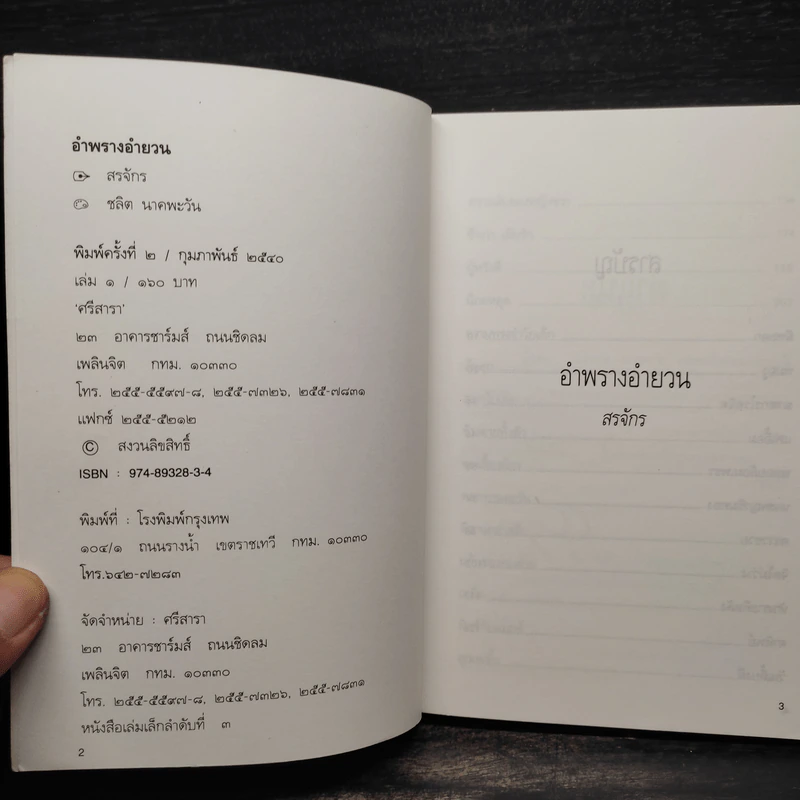 อำพรางอำยวน
สรจักร
ชลิต นาคพะวัน
พิมพ์ครั้งที่ ๒ / กุมภาพันธ์ ๒๕๔๐
เล่ม ๑ / ๑๖๐ บาท
'ศรีสารา'
๒๓ อาคารชาร์มส์ ถนนชิดลม
เพลินจิต กทม. ๑๐๓๓๐
โทร. ๒๕๕-๕๕๙๗-๘, ๒๕๕-๗๓๒๖, ๒๕๕-๗๘๓๑
แฟกซ์ ๒๕๕-๕๒๑๒
© สงวนลิขสิทธิ์
ISBN : 974-89328-3-4
พิมพ์ที่ : โรงพิมพ์กรุงเทพ
๑๐๔/๑ ถนนรางน้ำ เขตราชเทวี กทม. ๑๐๓๓๐
โทร.๖๔๒-๗๒๘๓
จัดจำหน่าย : ศรีสารา
๒๓ อาคารชาร์มส์ ถนนชิดลม
เพลินจิต กทม. ๑๐๓๓๐
โทร. ๒๕๕-๕๕๙๗-๘, ๒๕๕-๗๓๒๖, ๒๕๕-๗๘๓๑
หนังสือเล่มเล็กลำดับที่ ๓
2
อำพรางอำยวน
สรจักร
3